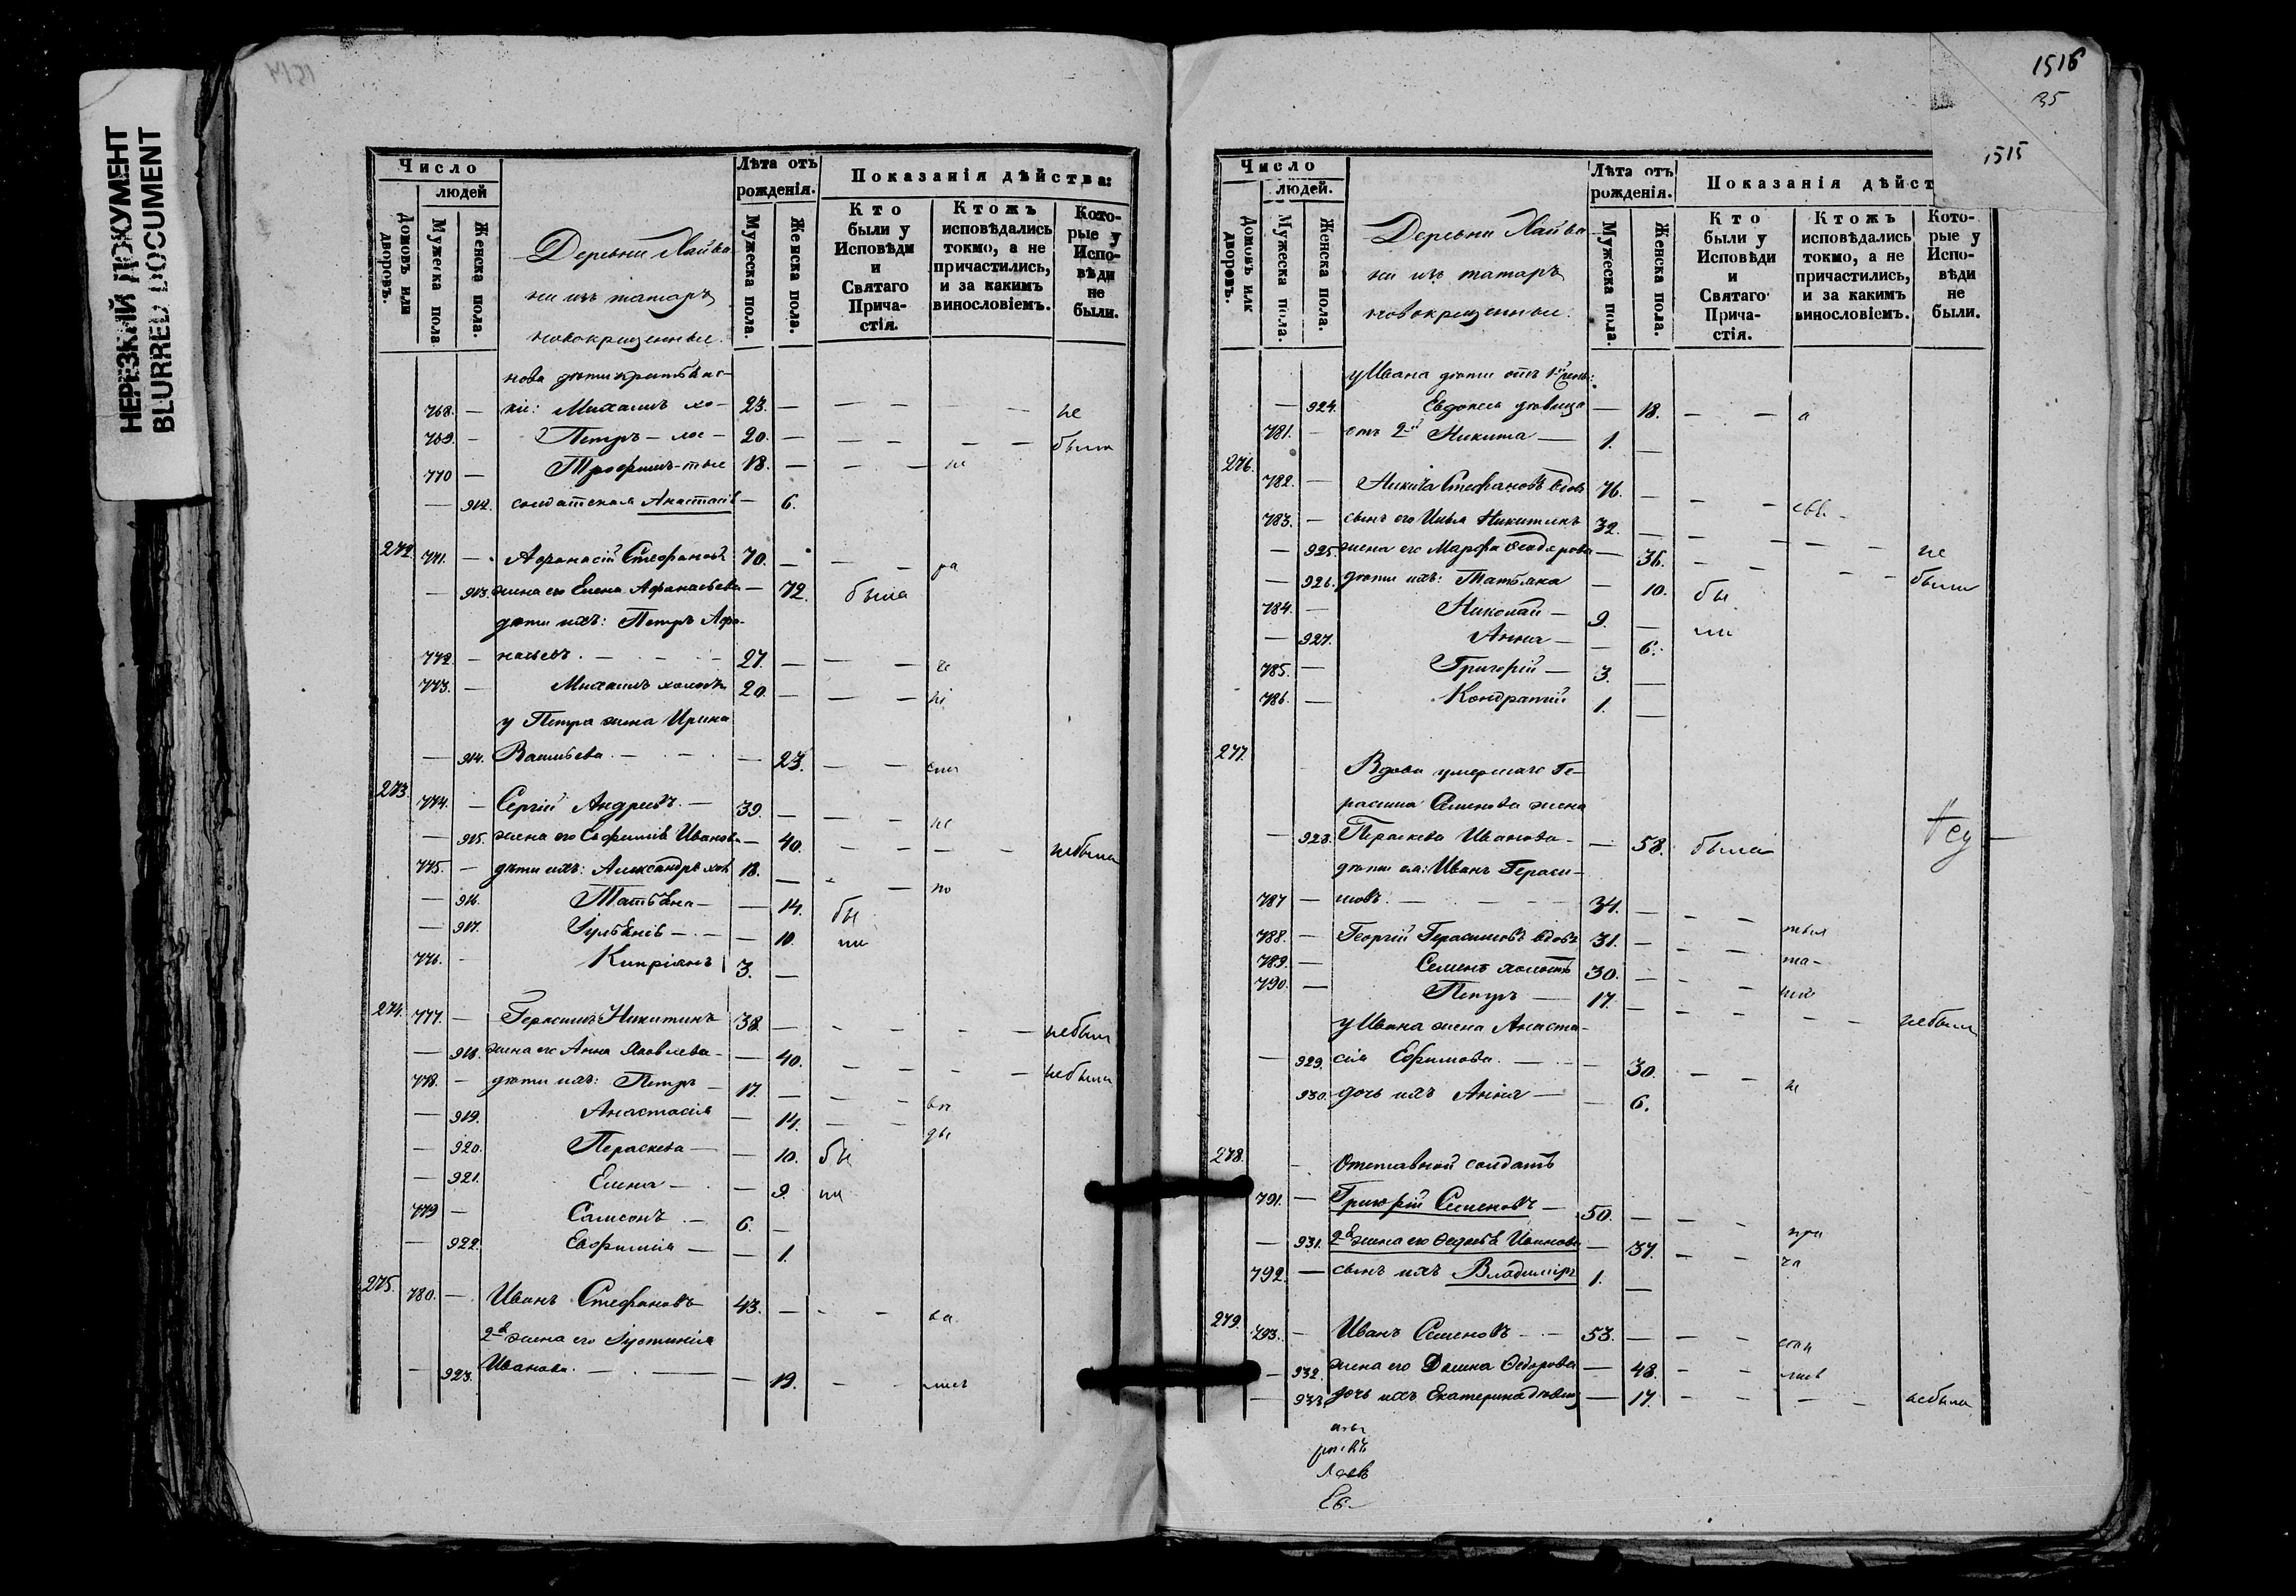 НЕРЕЗКИЙ ДОКУМЕНТ
BLURRED DOCUMENT
Число
людей
Домовъ или дворовъ.
Мужеска пола.
Женска пола.
Лѣта отъ рожденія.
Мужеска пола.
Женска пола.
Показанія дѣйства:
Кто были у Исповѣди и Святаго Причастія.
Ктожъ исповѣдались токмо, а не причастились, и за какимъ винословіемъ.
Которые у Исповѣди не были.
Деревни Хайва
ни изъ татаръ
новокрещенные.
нова дѣти
768. — Михаилъ хо- 23. — не
769. — Петръ — лос- 20. — были
770 — Трофимъ-тые 18. — не
— 912. солдатская Анастасія — 6.
272. 771. — Аѳанасій Стефановъ 70. — ра
— 913. жена его Елена Афанасьева — 72. была
дѣти ихъ: Петръ Афа-
772. — насьевъ 27. —
773. — Михаилъ холостъ 20. —
у Петра жена Ирина
— 914. Васильева — 23.
273. 774. — Сергій Андреевъ 39. — не
— 915. жена его Евфимія Иванова — 40. небыла
775. — дѣти ихъ: Александръ хол. 18. — по
— 916. Татьяна — 14. бы
— 917. Іульянія — 10. ли
776. — Кипріянъ 3. —
274. 777. — Герасимъ Никитинъ 38. — небылъ
— 918. жена его Анна Яковлева — 40. небыла
778. — дѣти ихъ: Петръ 17. —
— 919. Анастасія — 14.
— 920. Параскева — 10. бы
— 921. Елена — 9. ли
779 — Самсонъ 6. —
— 922. Евфимія — 1.
275. 780. — Иванъ Стефановъ 43. —
2я жена его Іустинія
— 923. Иванова — 19.
1516
35
1515
Число
людей.
Домовъ или дворовъ.
Мужеска пола.
Женска пола.
Лѣта отъ рожденія.
Мужеска пола.
Женска пола.
Показанія дѣйст
Кто были у Исповѣди и Святаго Причастія.
Ктожъ исповѣдались токмо, а не причастились, и за какимъ винословіемъ.
Которые у Исповѣди не были.
Деревни Хайва
ни изъ татаръ
новокрещенные.
у Ивана дѣти отъ 1й жены:
— 924. Евдокія дѣвица — 18. — а
781. — отъ 2й Никита 1. —
276. 782. — Никита Стефановъ вдовъ 76. —
783. — сынъ его Илья Никитинъ 32. — не
— 925. жена его Марфа Ѳеодорова — 36. были
— 926. дѣти ихъ: Татьяна — 10. бы
784. — Николай 9. — ли
— 927. Анна — 6.
785. — Григорій 3. —
786. — Кондратій 1. —
277. Вдова умершаго Ге-
расима Семенова жена
— 928. Параскева Иванова — 58. была
дѣти ея: Иванъ Гераси-
787 — мовъ 34. —
788. — Георгій Герасимовъ вдовъ 31. —
789. — Семенъ холостъ 30. —
790. — Петръ 17. — небылъ
у Ивана жена Анаста-
— 929. сія Ефимова — 30.
930. дочь ихъ Анна — 6.
278. Отставной солдатъ
791. — Григорій Семеновъ 50. — при
— 931. 2я жена его Ѳедосья Иванова — 37. ча
792. — сынъ ихъ Владиміръ 1. —
279. 793. — Иванъ Семеновъ 53. —
— 932. жена его Домна Ѳедорова — 48.
— 933. дочь ихъ Екатерина дѣвица — 17. небыла